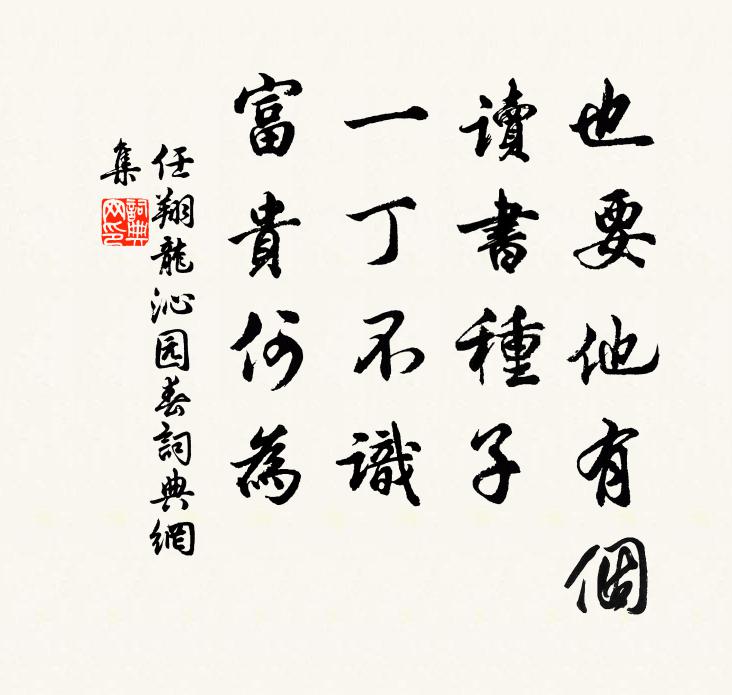 也要他有個
讀書種子
一丁不識
富貴何為
任翔龍沁园春詞典網
集
詞典网印